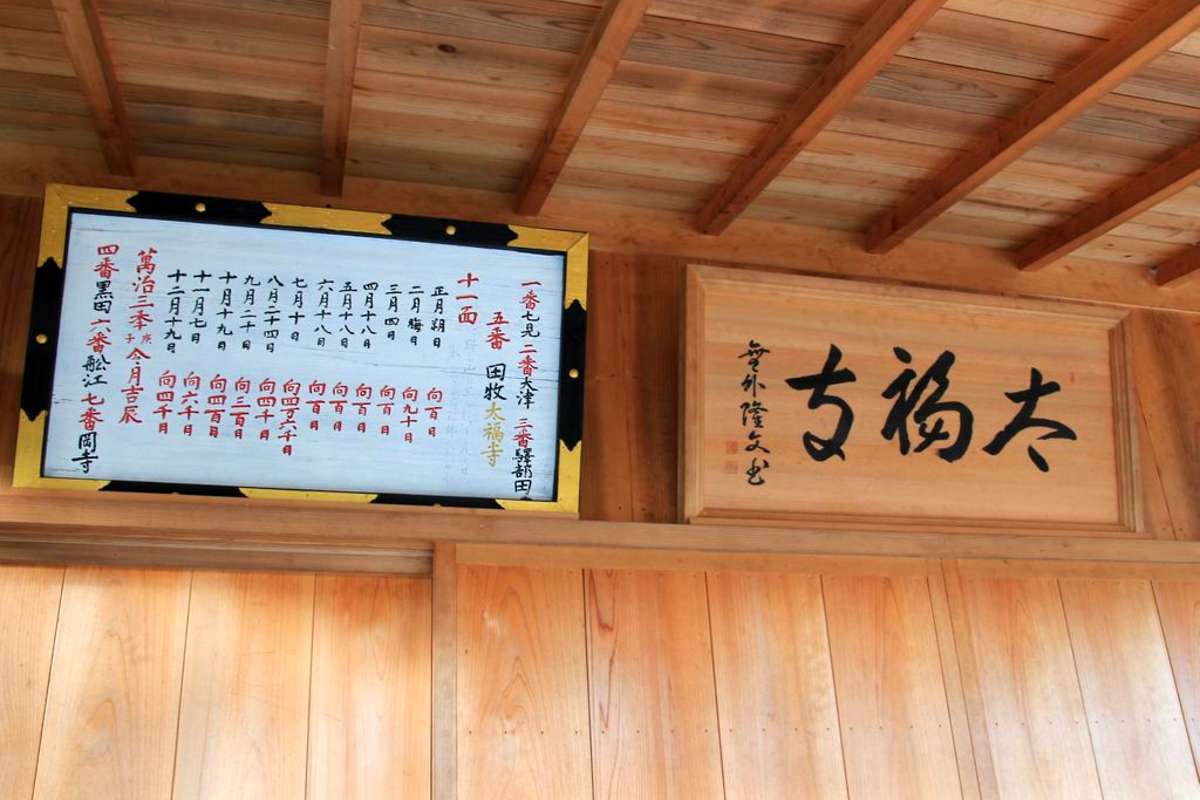 太福寺
無外隆文書
一番七見 二番大津 三番驛部田
五番 田牧 太福寺
十一面
正月朔日 向百日
二月晦日 向九十日
三月四日 向百日
四月十八日 向百日
五月十八日 向百日
六月十八日 向百日
七月十日 向四万六千日
八月二十四日 向四千日
九月二十日 向三百日
十月十九日 向四百日
十一月七日 向六千日
十二月十九日 向四千日
萬治三季庚子今月吉辰
四番黒田 六番舩江 七番岡寺